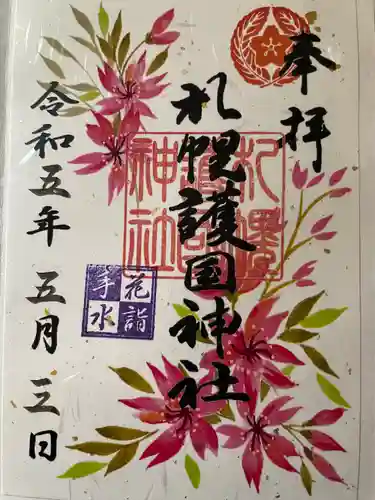 奉拝
札幌護國神社
令和五年五月三日
札幌護國神社
花詣
手水